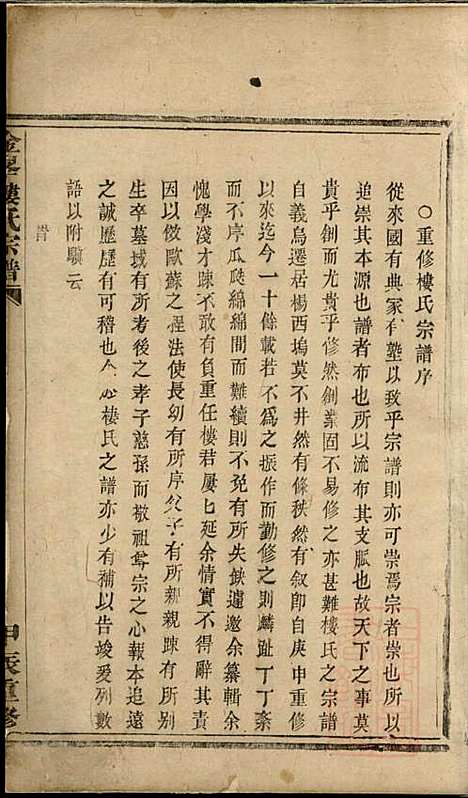 ○重修樓氏宗譜序
從來國有典家有塾以致乎宗譜則亦可崇焉宗者崇也所以
追崇其本源也譜者布也所以流布其支脈也故天下之事莫
貴乎創而尤貴乎修然創業固不易修之亦甚難樓氏之宗譜
自義烏遷居楊西塢莫不井然有條秩然有叙卽自庚申重修
以來迄今一十餘載若不爲之振作而勤修之則麟趾丁丁椉
而不序瓜瓞綿綿間而難續則不免有所失鈌遽邀余纂輯余
愧學淺才踈不敢有負重任樓君屢匕延余情實不得辭其責
因以倣歐蘇之程法使長幼有所序父子有所親親踈有所别
生卒墓域有所考後之孝子慈孫而敬祖尊宗之心報本追遠
之誠歷歷有可稽也 樓氏之譜亦少有補以告竣爰列數
語以附驥云
旹
金 樓氏宗譜
甲辰重修